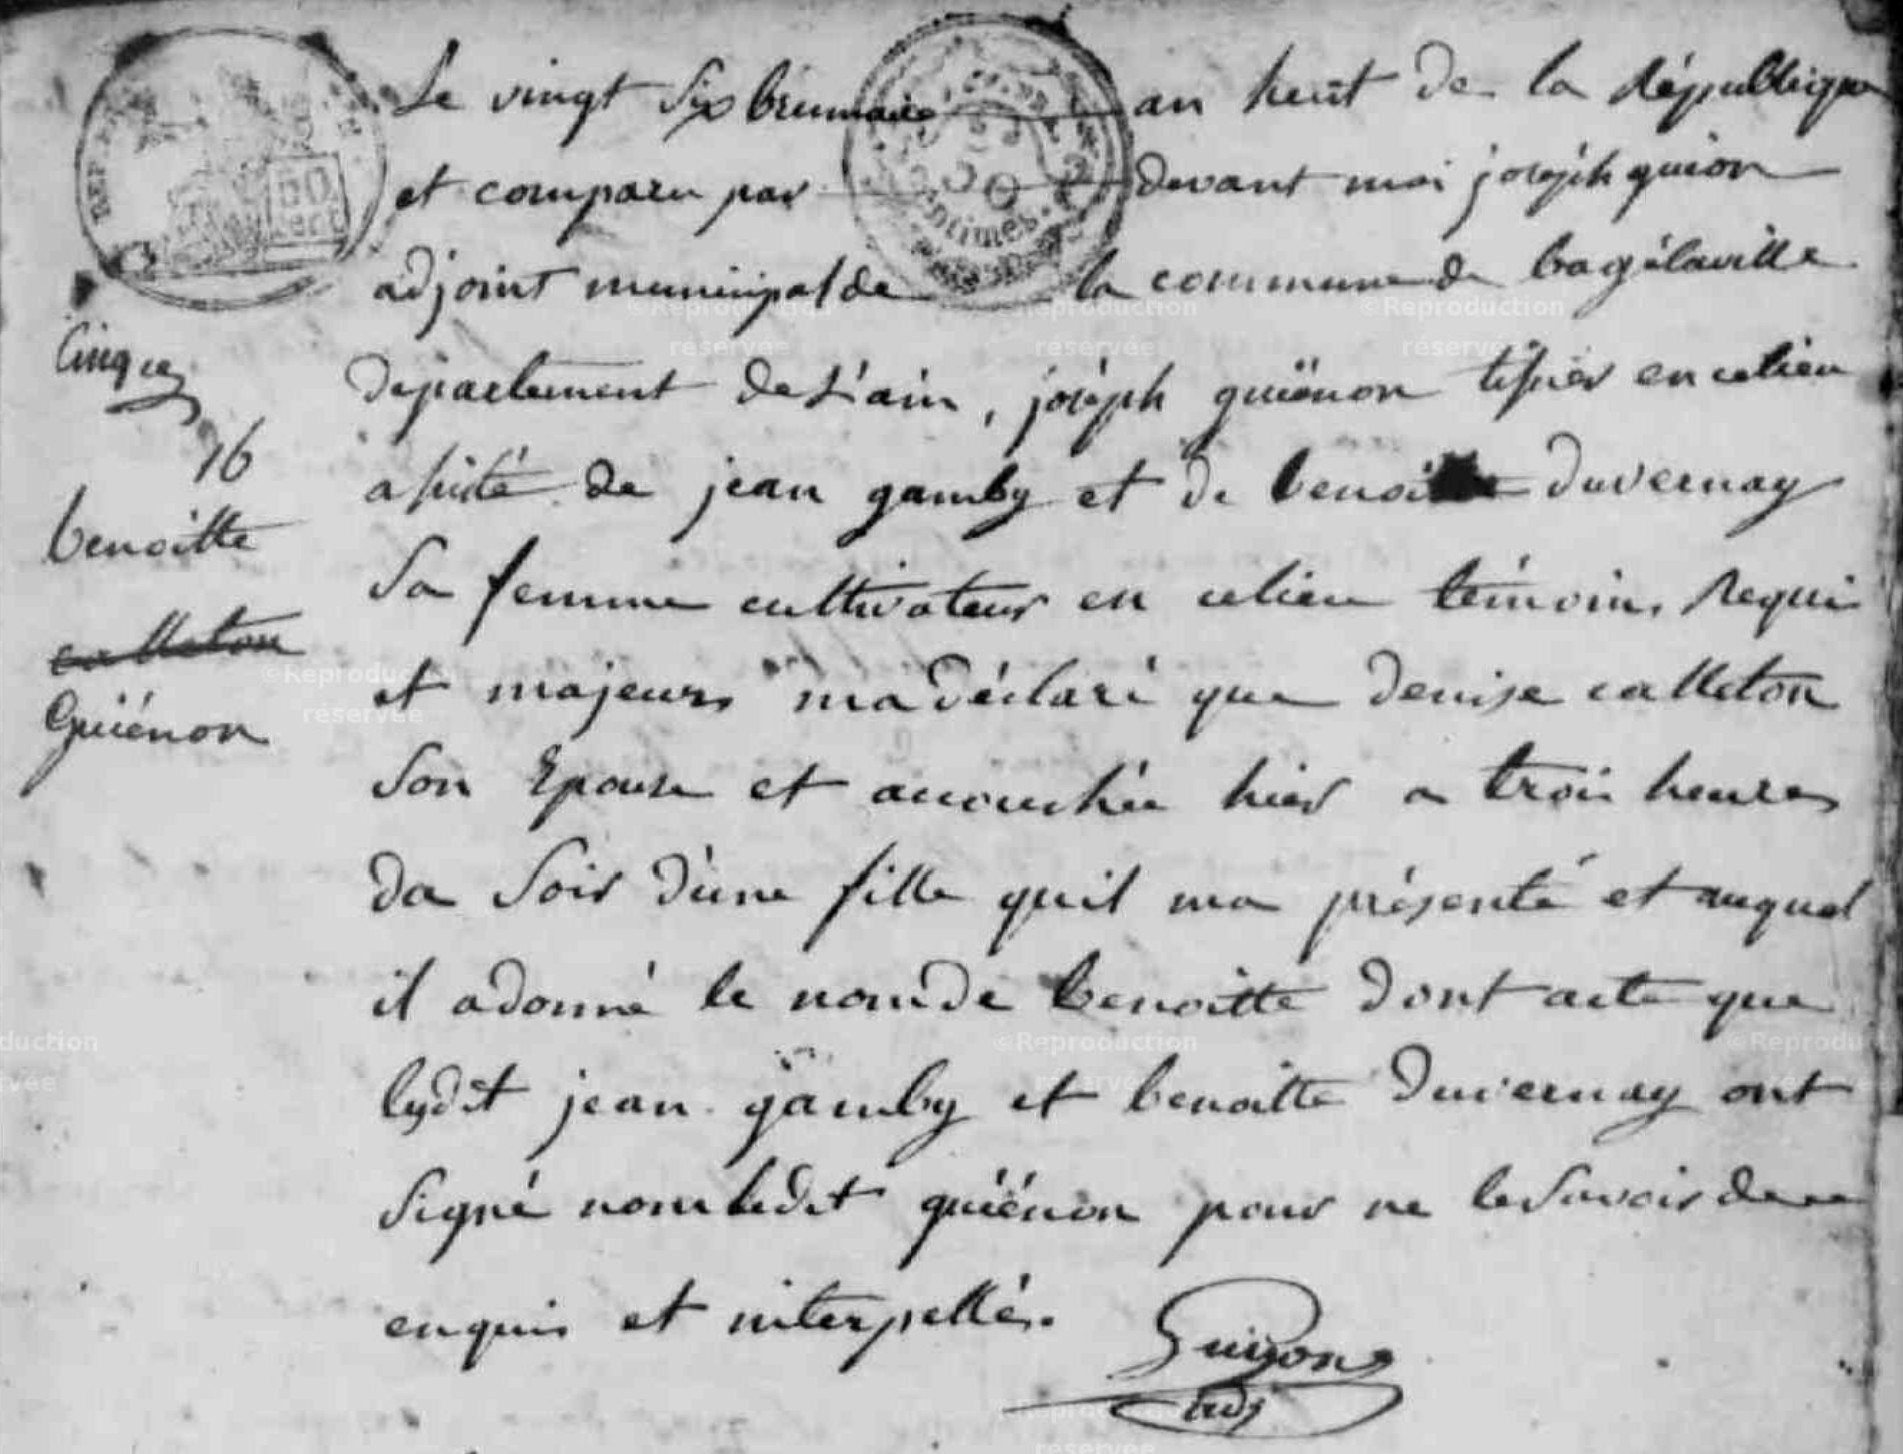 Le vingt six brumaire an heut de la République
et comparu par devant moi joseph guion
adjoint municipal de la commune de bagélaville
departement de L'ain, joséph guiénon tissier en celieu
assisté de jean gamby et de benoitte duvernay
Sa femme cultivateur en celieu témoins Requi
et majeurs ma déclaré que denise calleton
Son Epouse et accouchée hier a trois heures
da Soir d'une fille quil ma présenté et auquel
il adonné le nom de benoitte dont acte que
lydit jean gamby et benoitte duvernay ont
Signé non ledit guiénon pour ne le Savoir de ce
enquis et interpellés.
Guyon
adj
Cinq
16
benoitte
calleton
Guiénon
50
cent